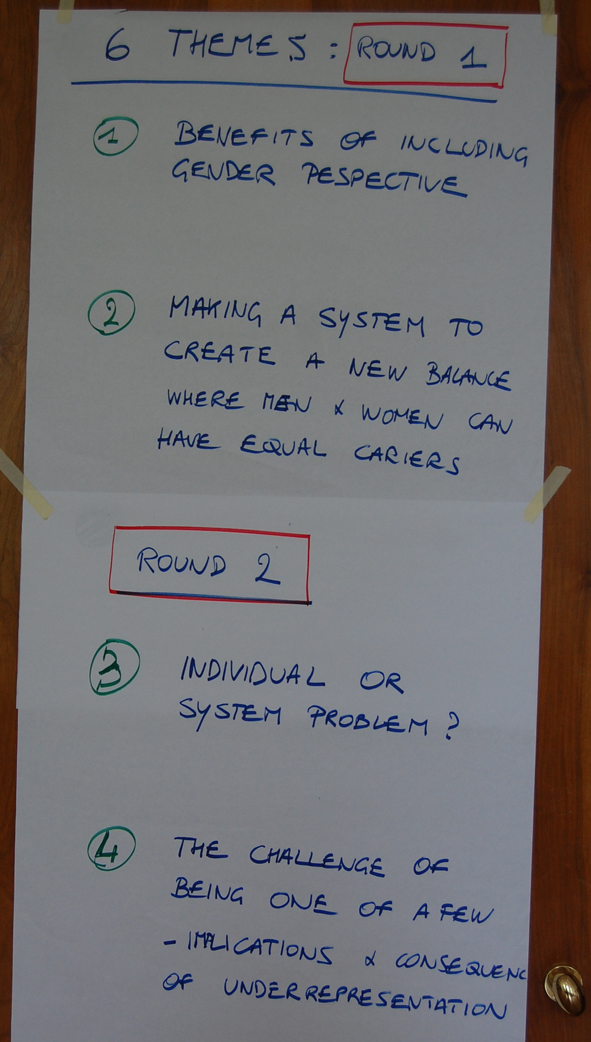 6 THEMES: ROUND 1
1 BENEFITS OF INCLUDING
GENDER PESPECTIVE
2 MAKING A SYSTEM TO
CREATE A NEW BALANCE
WHERE MEN & WOMEN CAN
HAVE EQUAL CARIERS
ROUND 2
3 INDIVIDUAL OR
SYSTEM PROBLEM?
4 THE CHALLENGE OF
BEING ONE OF A FEW
- IMPLICATIONS & CONSEQUENC
OF UNDERREPRESENTATION